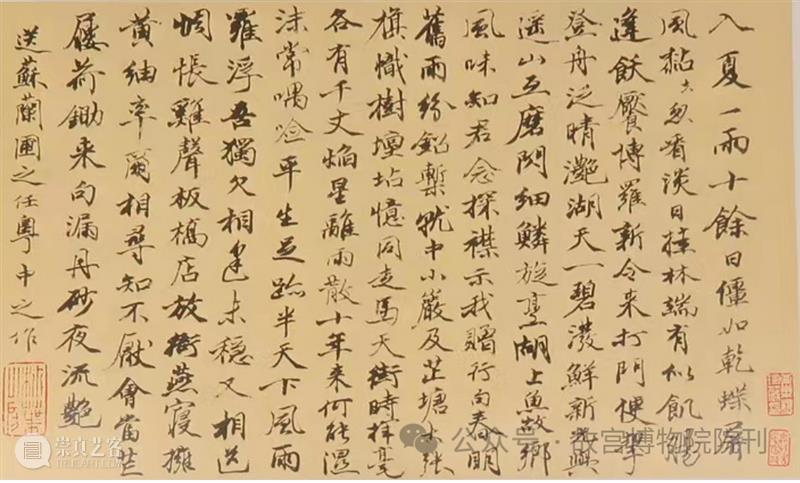 入夏一雨十餘日僵如乾蝶屏
風黏去忽看淡日挂林端有似飢腸
逢飫饜博羅新令来打門便挈
登舟泛晴灩湖天一碧潑鮮新光與
遥山互磨閃細鱗旋烹湖上魚故鄉
風味知君念探襟示我贈行句春明
舊雨紛鉛槧就中小巖及芷塘大張
旗幟樹壇坫憶同走馬天街時抹毫
各有千丈焰星離雨散十年来何能濕
沫常喁噞平生足跡半天下風雨
羅浮吾獨欠相逢未穩又相送
惆悵雞聲板橋店放衙燕寢擁
黄紬率爾相尋知不厭會當芒
屩荷鋤来句漏丹砂夜流艷
送蘇蘭圃之任粤中之作
崇真艺客
公众号 · 故宫博物院院刊